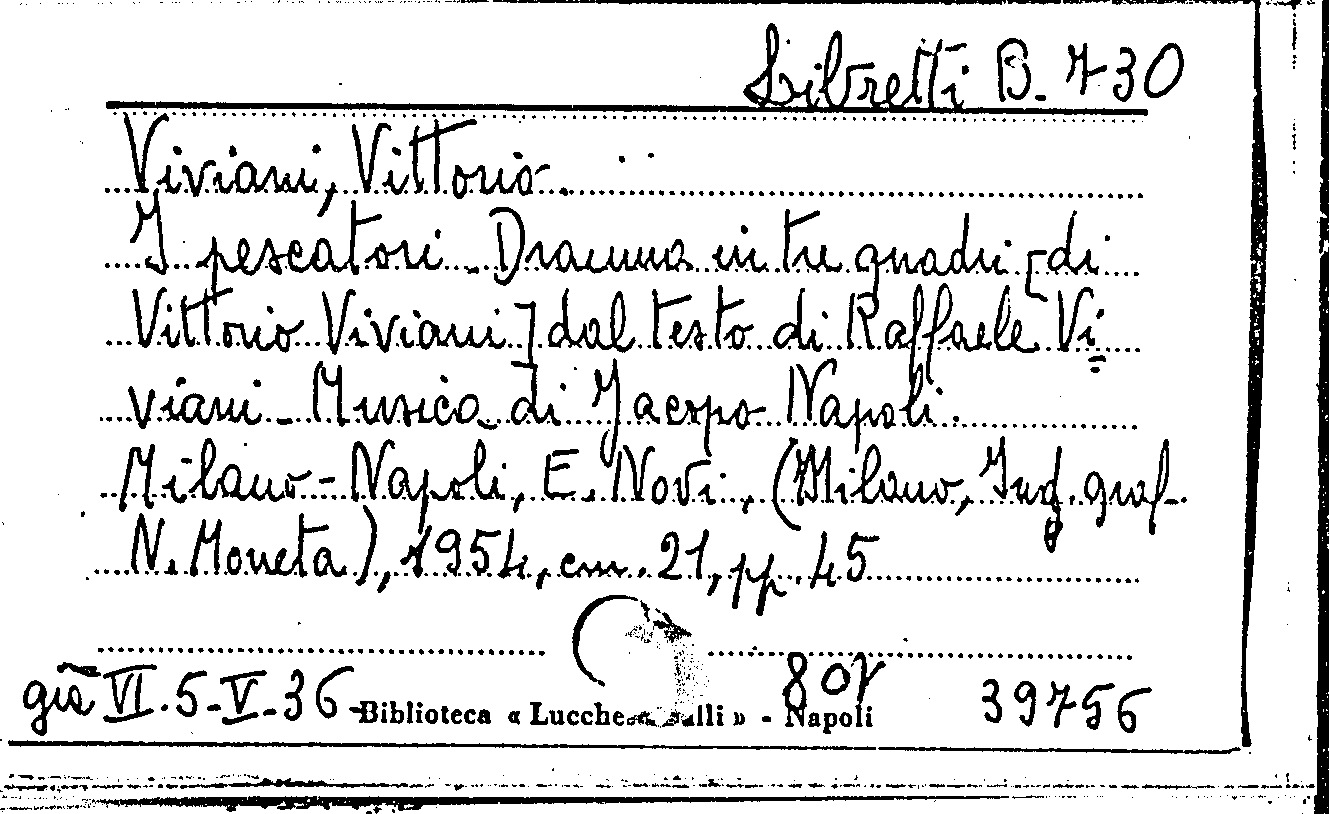 Libretti B. 730
Viviani, Vittorio.
I pescatori - Dramma in tre quadri [di
Vittorio Viviani] dal testo di Raffaele Vi=
viani - Musica di Jacopo Napoli.
Milano - Napoli, E. Novi, (Milano, Ind. graf.
N. Moneta), 1954, cm. 21, pp. 45
già VI. 5-V-36 Biblioteca « Lucchesi Palli » - Napoli 39756